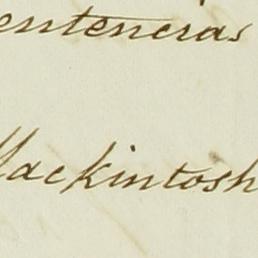 entencias
Mackintosh